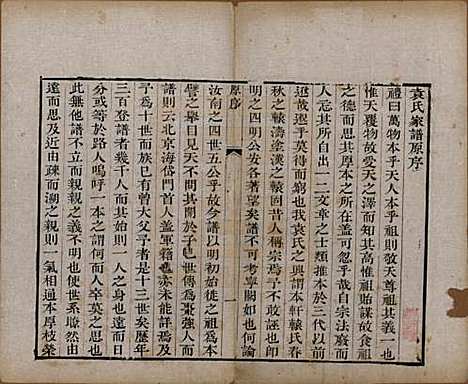 袁氏家譜原序
禮曰萬物本乎天人本乎祖則敬天尊祖其義一也
惟天覆物故愛天之澤而高惟祖貽謀故食祖
之德而思其厚本之所在烏可忽哉自宗法廢而
人忘其初不一二文章之士類推本于三代以前
遐遐乎莫得而窮也我袁氏之興謂本軒轅氏春
秋之轅濤塗漢之轅固昔人稱宗焉予不敢誣也即
明之四明公安各著望矣譜不可考寧闕如也何論
原序
一
汝南之四世五公乎故今譜以明初始徙之祖為本
譬之舉目見天不明其開闢于子巳世傳為毫強人
譜則云北京海岱門首人蓋軍籍也亦未能詳焉及
予為十世而族有曾大父予者是十三世矣歷年
三百登譜者幾千人而其始一人之身也遠而日
分或等於路人嗚呼一本之謂何而人卒莫之思
也他譜不立而親親之義不明也使世系瞭然由
遠而思及近由疎而溯之親則一氣相通本厚枝榮